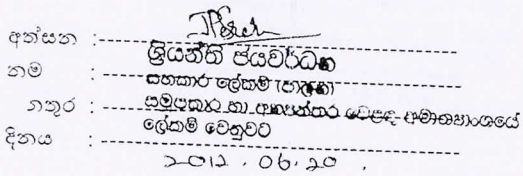 අත්සන :
ශ්‍රියන්ති ජයවර්ධන
නම :
සහකාර ලේකම් (පාලන)
තතුර :
සමුපකාර හා අභ්‍යන්තර වෙළඳ අමාත්‍යාංශයේ
ලේකම් වෙනුවට
දිනය :
2012 . 06. 20 .